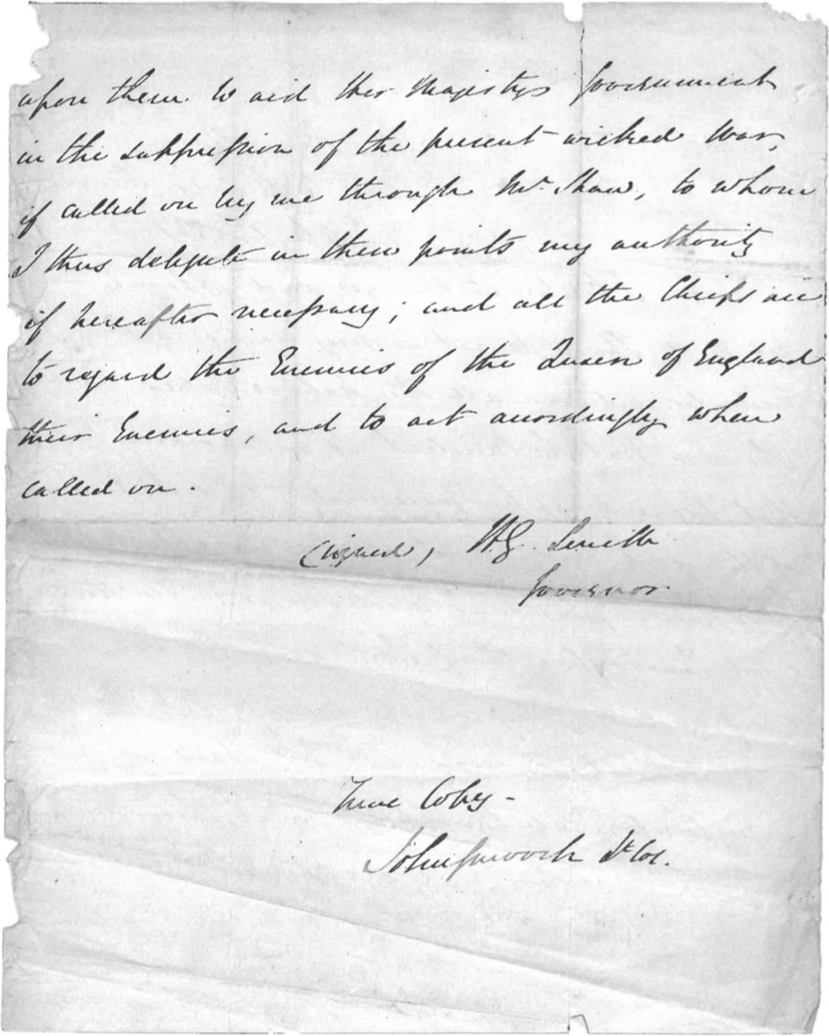 upon them to aid Her Majestys Government
in the suppression of the present wicked War,
if called on by me through Mr. Shaw, to whom
I thus delegate in these points my authority
if hereafter necessary; and all the Chiefs are
to regard the Enemies of the Queen of England
their Enemies, and to act accordingly when
called on.
(signed), H.G. Smith
Governor.
True Copy -
Lt Col.